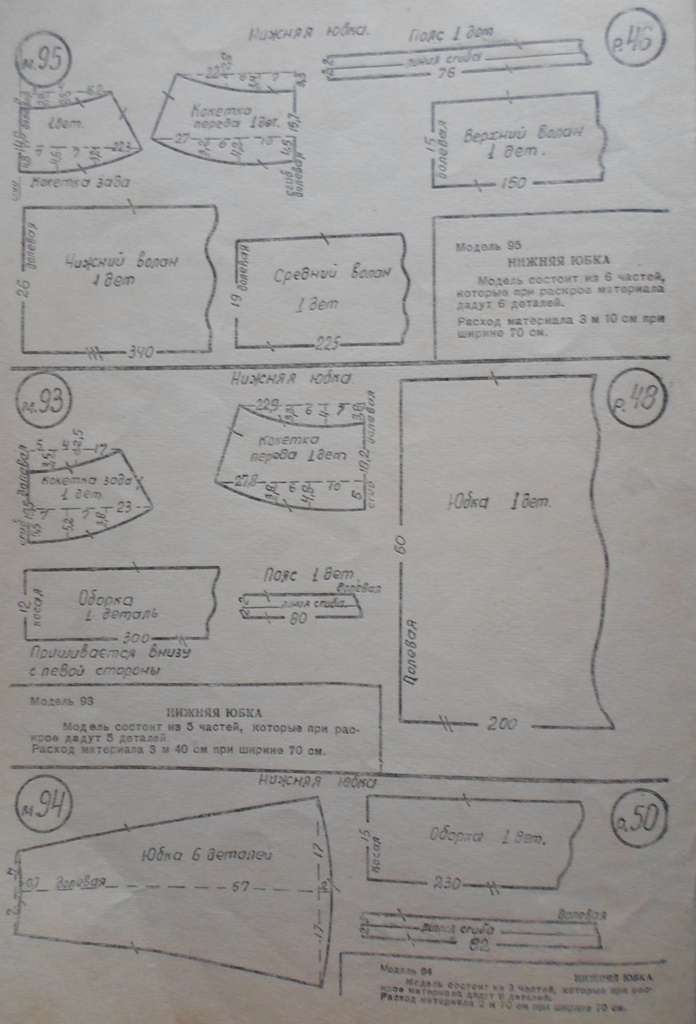 м.95
Нижняя юбка.
Р.46
Пояс 1 дет
линия сгиба
76
1 дет.
22,3
Кокетка зада
Кокетка
переда 1 дет.
27
6
10
16,7
4,5
сгиб
долевая
15
долевая
Верхний волан
1 дет.
150
26
долевая
Нижний волан
1 дет
340
19
долевая
Средний волан
1 дет
225
Модель 95
НИЖНЯЯ ЮБКА
Модель состоит из 6 частей,
которые при раскрое материала
дадут 6 деталей.
Расход материала 3 м 10 см при
ширине 70 см.
м.93
Нижняя юбка
Р.48
5
4
17
долевая
Кокетка зада
1 дет.
23
22,9
6
4
долевая
Кокетка
переда 1 дет
18,2
27,8
6
4,8
10
5
сгиб
60
Долевая
Юбка 1 дет.
200
12
косая
Оборка
1 деталь
300
Пришивается внизу
с левой стороны
Пояс 1 дет.
долевая
линия сгиба
80
Модель 93
НИЖНЯЯ ЮБКА
Модель состоит из 5 частей, которые при рас-
крое дадут 5 деталей.
Расход материала 3 м 40 см при ширине 70 см.
м94
Нижняя юбка
р.50
Юбка 6 деталей
долевая
57
17
17
15
косая
Оборка 1 дет.
230
долевая
линия сгиба
82
Модель 94
НИЖНЯЯ ЮБКА
Модель состоит из 3 частей, которые при рас-
крое материала дадут 8 деталей.
Расход материала 2 м 70 см при ширине 70 см.